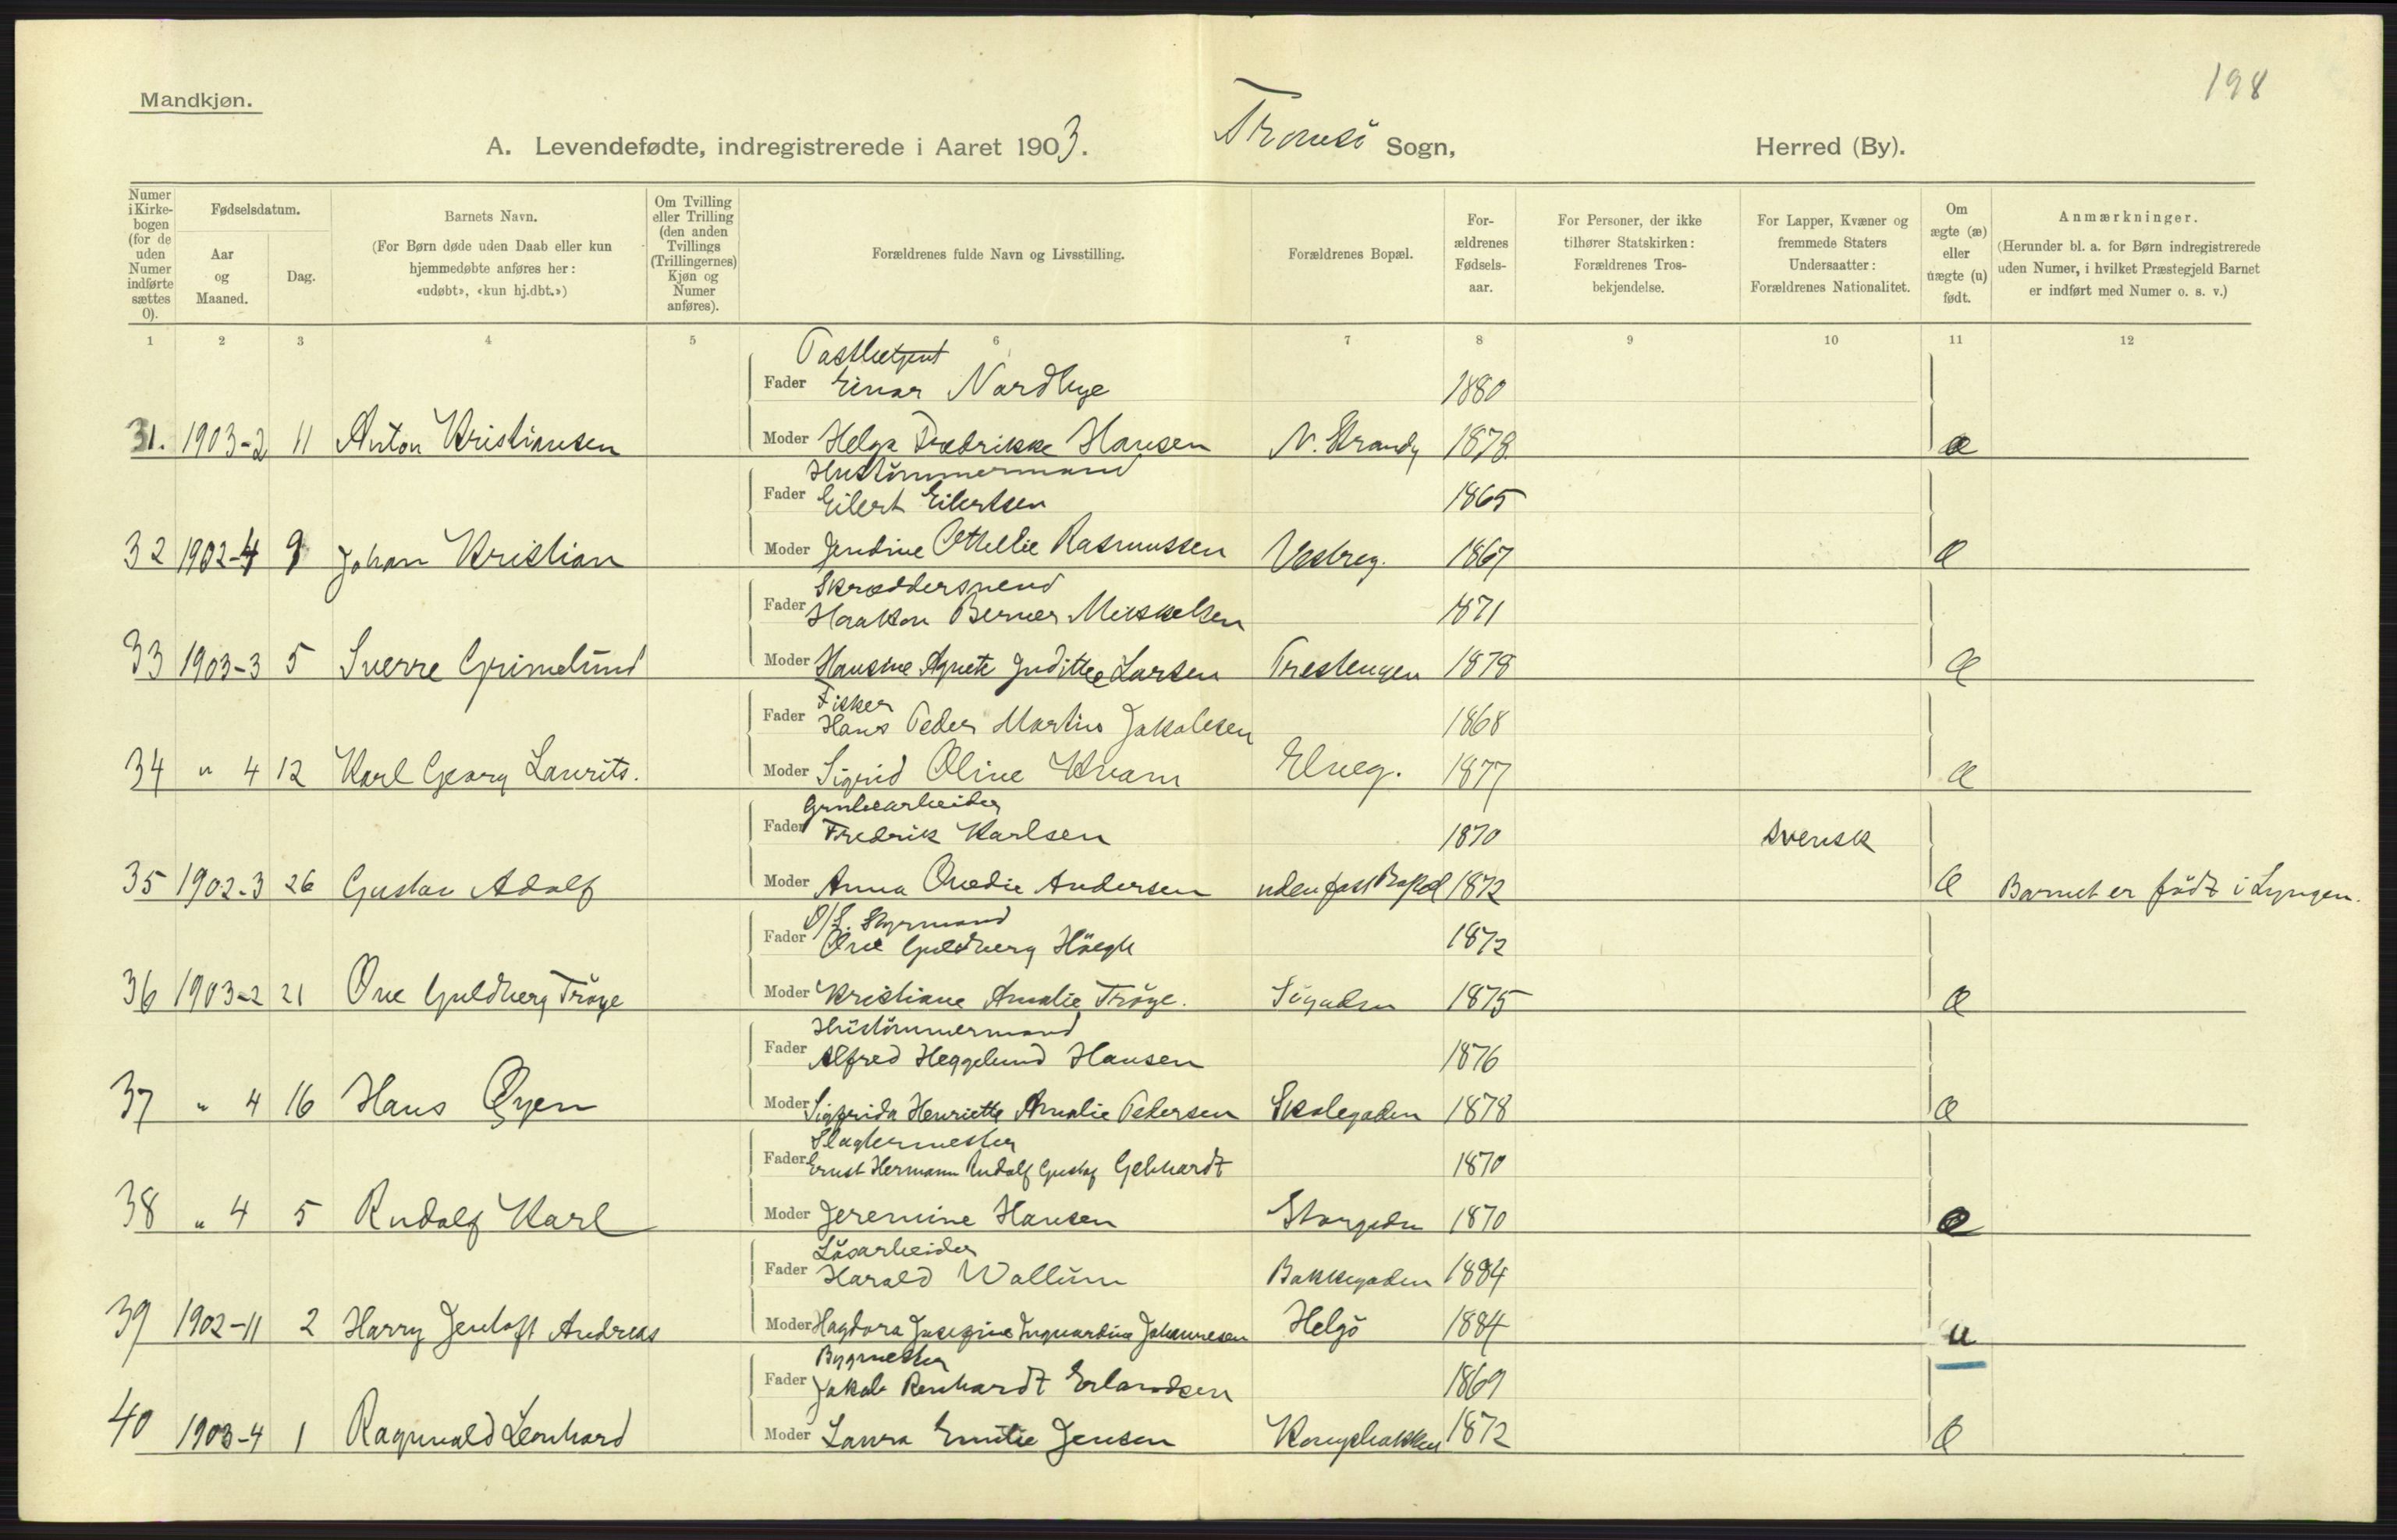 198
Mandkjøn.
A. Levendefødte, indregistrerede i Aaret 1903. Tromsö Sogn, Herred (By).
Numer i Kirkebogen (for de uden Numer indførte sættes 0).
Fødselsdatum.
Aar og Maaned.
Dag.
Barnets Navn.
(For Børn døde uden Daab eller kun hjemmedøbte anføres her: «udøbt», «kun hj.dbt.»)
Om Tvilling eller Trilling (den anden Tvillings (Trillingernes) Kjøn og Numer anføres).
Forældrenes fulde Navn og Livsstilling.
Forældrenes Bopæl.
Forældrenes Fødselsaar.
For Personer, der ikke tilhører Statskirken: Forældrenes Trosbekjendelse.
For Lapper, Kvæner og fremmede Staters Undersaatter: Forældrenes Nationalitet.
Om ægte (æ) eller uægte (u) født.
Anmærkninger.
(Herunder bl. a. for Børn indregistrerede uden Numer, i hvilket Præstegjeld Barnet er indført med Numer o. s. v.)
1 2 3 4 5 6 7 8 9 10 11 12
Fader Einar Nordbye 1880
31. 1903-2 11 Anton Kristiansen Moder Helga Fredrikke Hansen N. Strandg 1878 æ
Hustömmermand
Fader Eilert Eilertsen 1865
32 1902-4 9 Johan Kristian Moder Jendine Ottellie Rasmussen Vestreg. 1867 æ
Skræddersvend
Fader Haakon Berner Mikkelsen 1871
33 1903-3 5 Sverre Grimelund Moder Hansine Agnete Judithe Larsen 1878 æ
Fisker
Fader Hans Peder Martin Jakobsen 1868
34 " 4 12 Karl Georg Laurits. Moder Sigrid Oline Kvam Elveg. 1877 æ
Grubearbeider
Fader Fredrik Karlsen 1870 svensk
35 1902-3 26 Gustav Adolf Moder Anna Ovedie Andersen uden fast Bopæl 1872 æ Barnet er födt i Lyngen.
Styrmand
Fader Ove Guldberg Höegh 1872
36 1903-2 21 Ove Guldberg Tröye Moder Kristiane Amalie Tröye. Sögaden 1875 æ
Hustömmermand
Fader Alfred Heggelund Hansen 1876
37 " 4 16 Hans Øyen Moder Sigfrida Henriette Amalie Pedersen Skolegaden 1878 æ
Slagtermester
Fader Ernst Hermann Rudolf Gustaf Gebhardt 1870
38 " 4 5 Rudolf Karl Moder Jeremine Hansen Storgaden 1870 æ
Lösarbeider
Fader Harald Wollum Bakkegaden 1884
39 1902-11 2 Harry Jentoft Andreas Moder Hagdora Josefine Ingvardine Johannesen Helgö 1884 u
Bygmester
Fader Jakob Renhardt Erlandsen 1869
40 1903-4 1 Ragnvald Leonhard Moder Laura Emilie Jensen Kongsbakken 1872 æ